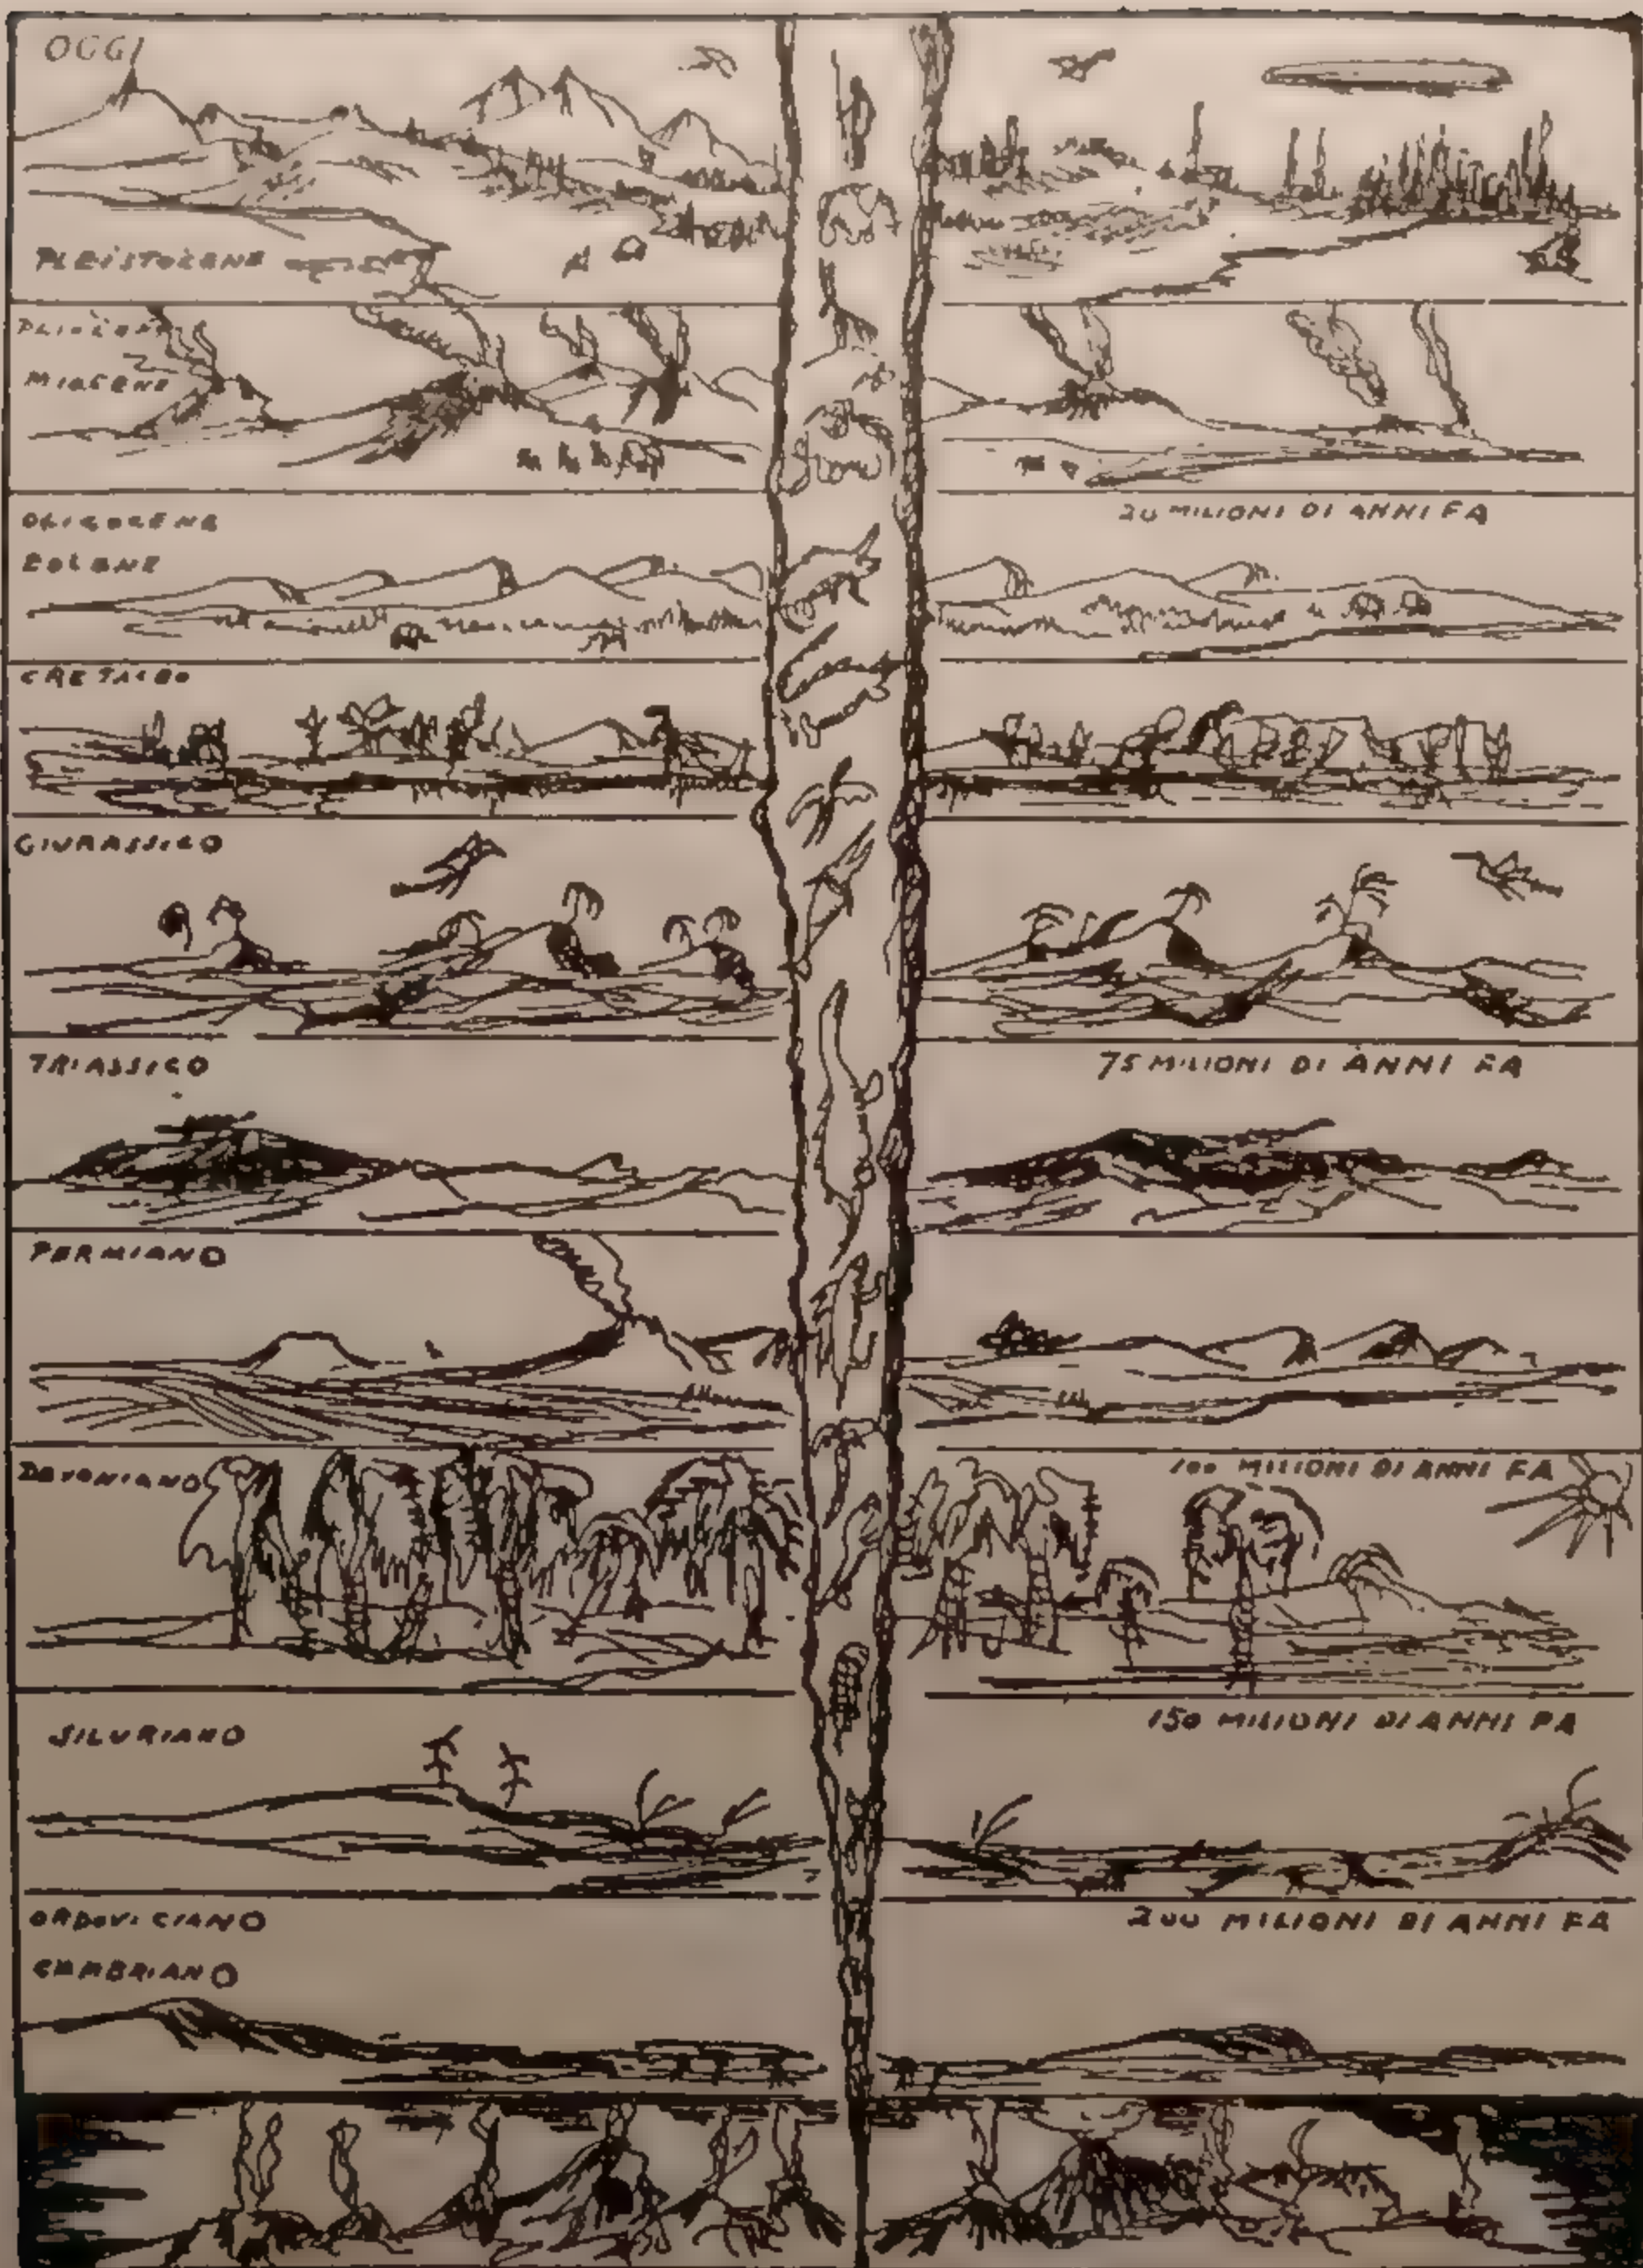 OGGI
PLEISTOCENE
PLIOCENE
MIOCENE
OLIGOCENE
20 MILIONI DI ANNI FA
EOCENE
CRETACEO
GIURASSICO
TRIASSICO
75 MILIONI DI ANNI FA
PERMIANO
DEVONIANO
100 MILIONI DI ANNI FA
SILURIANO
150 MILIONI DI ANNI FA
ORDOVICIANO
200 MILIONI DI ANNI FA
CAMBRIANO